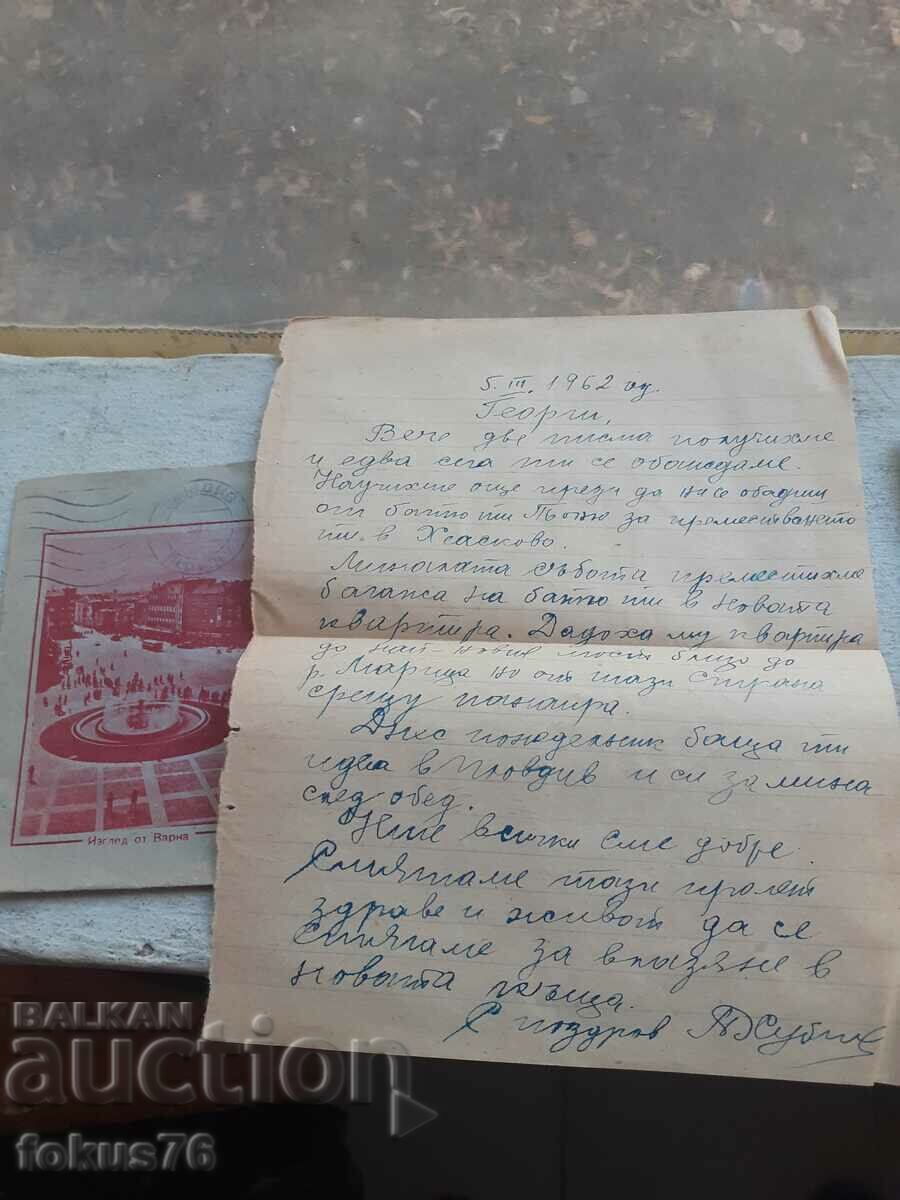 5. III. 1962 год.
Георги,
Вече две писма получихме
и едва сега ти се обаждаме.
Научихме още преди да ни се обадиш
от батю ти Тоню за преместването
ти в Хасково.
Миналата събота преместихме
багажа на батю ти в новата
квартира. Дадоха му квартира
до най-новия мост близо до
р. Марица но от тази страна
срещу панаира.
Днес понеделник баща ти
идва в Пловдив и си замина
след обед.
Ние всички сме добре.
Смятаме тази пролет
здраве и живот да се
стягаме за влизане в
новата къща.
С поздрав
Изглед от Варна
BALKAN
auction
fokus76